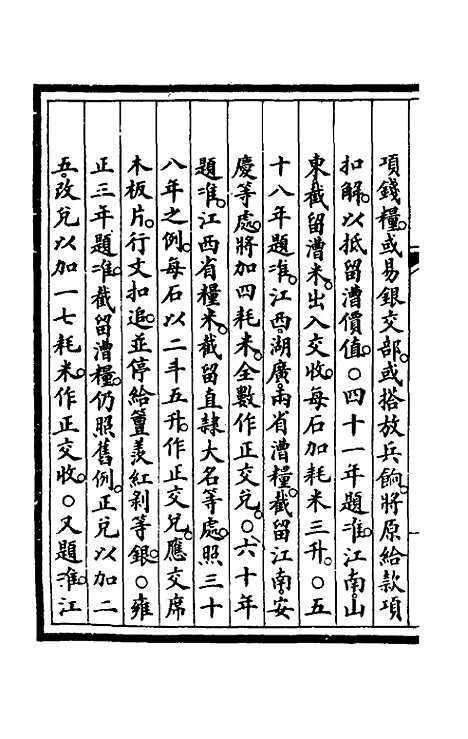 項錢糧。或易銀交部。或搭放兵餉。將原給款項
扣解。以抵留漕價值。○四十一年題准。江南山
東截留漕米。出入交收。每石加耗米三升。○五
十八年題准。江西湖廣兩省漕糧。截留江南安
慶等處。將加四耗米。全數作正交兌。○六十年
題准。江西省糧米。截留直隸大名等處。照三十
八年之例。每石以二斗五升。作正交兌。應交席
木板片。行文扣追。並停給簟羨紅剝等銀。○雍
正三年題准。截留漕糧。仍照舊例。正兌以加二
五。改兌以加一七耗米。作正交收。○又題准。江